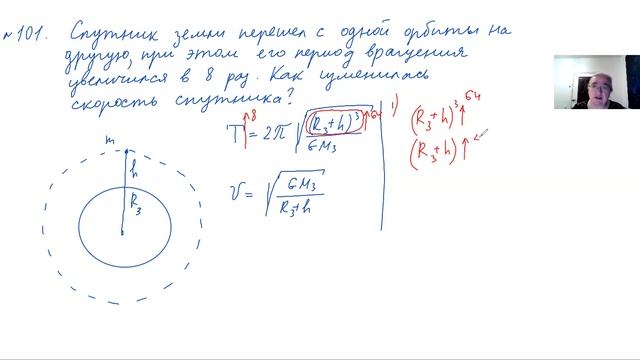 № 101. Спутник земли перешел с одной орбиты на
другую, при этом его период вращения
увеличился в 8 раз. Как изменилась
скорость спутника?
T ↑8 = 2π √((R₃+h)³ ↑64 / GM₃)
1) (R₃+h)³ ↑64
(R₃+h) ↑
m
h
R₃
v = √(GM₃ / R₃+h)